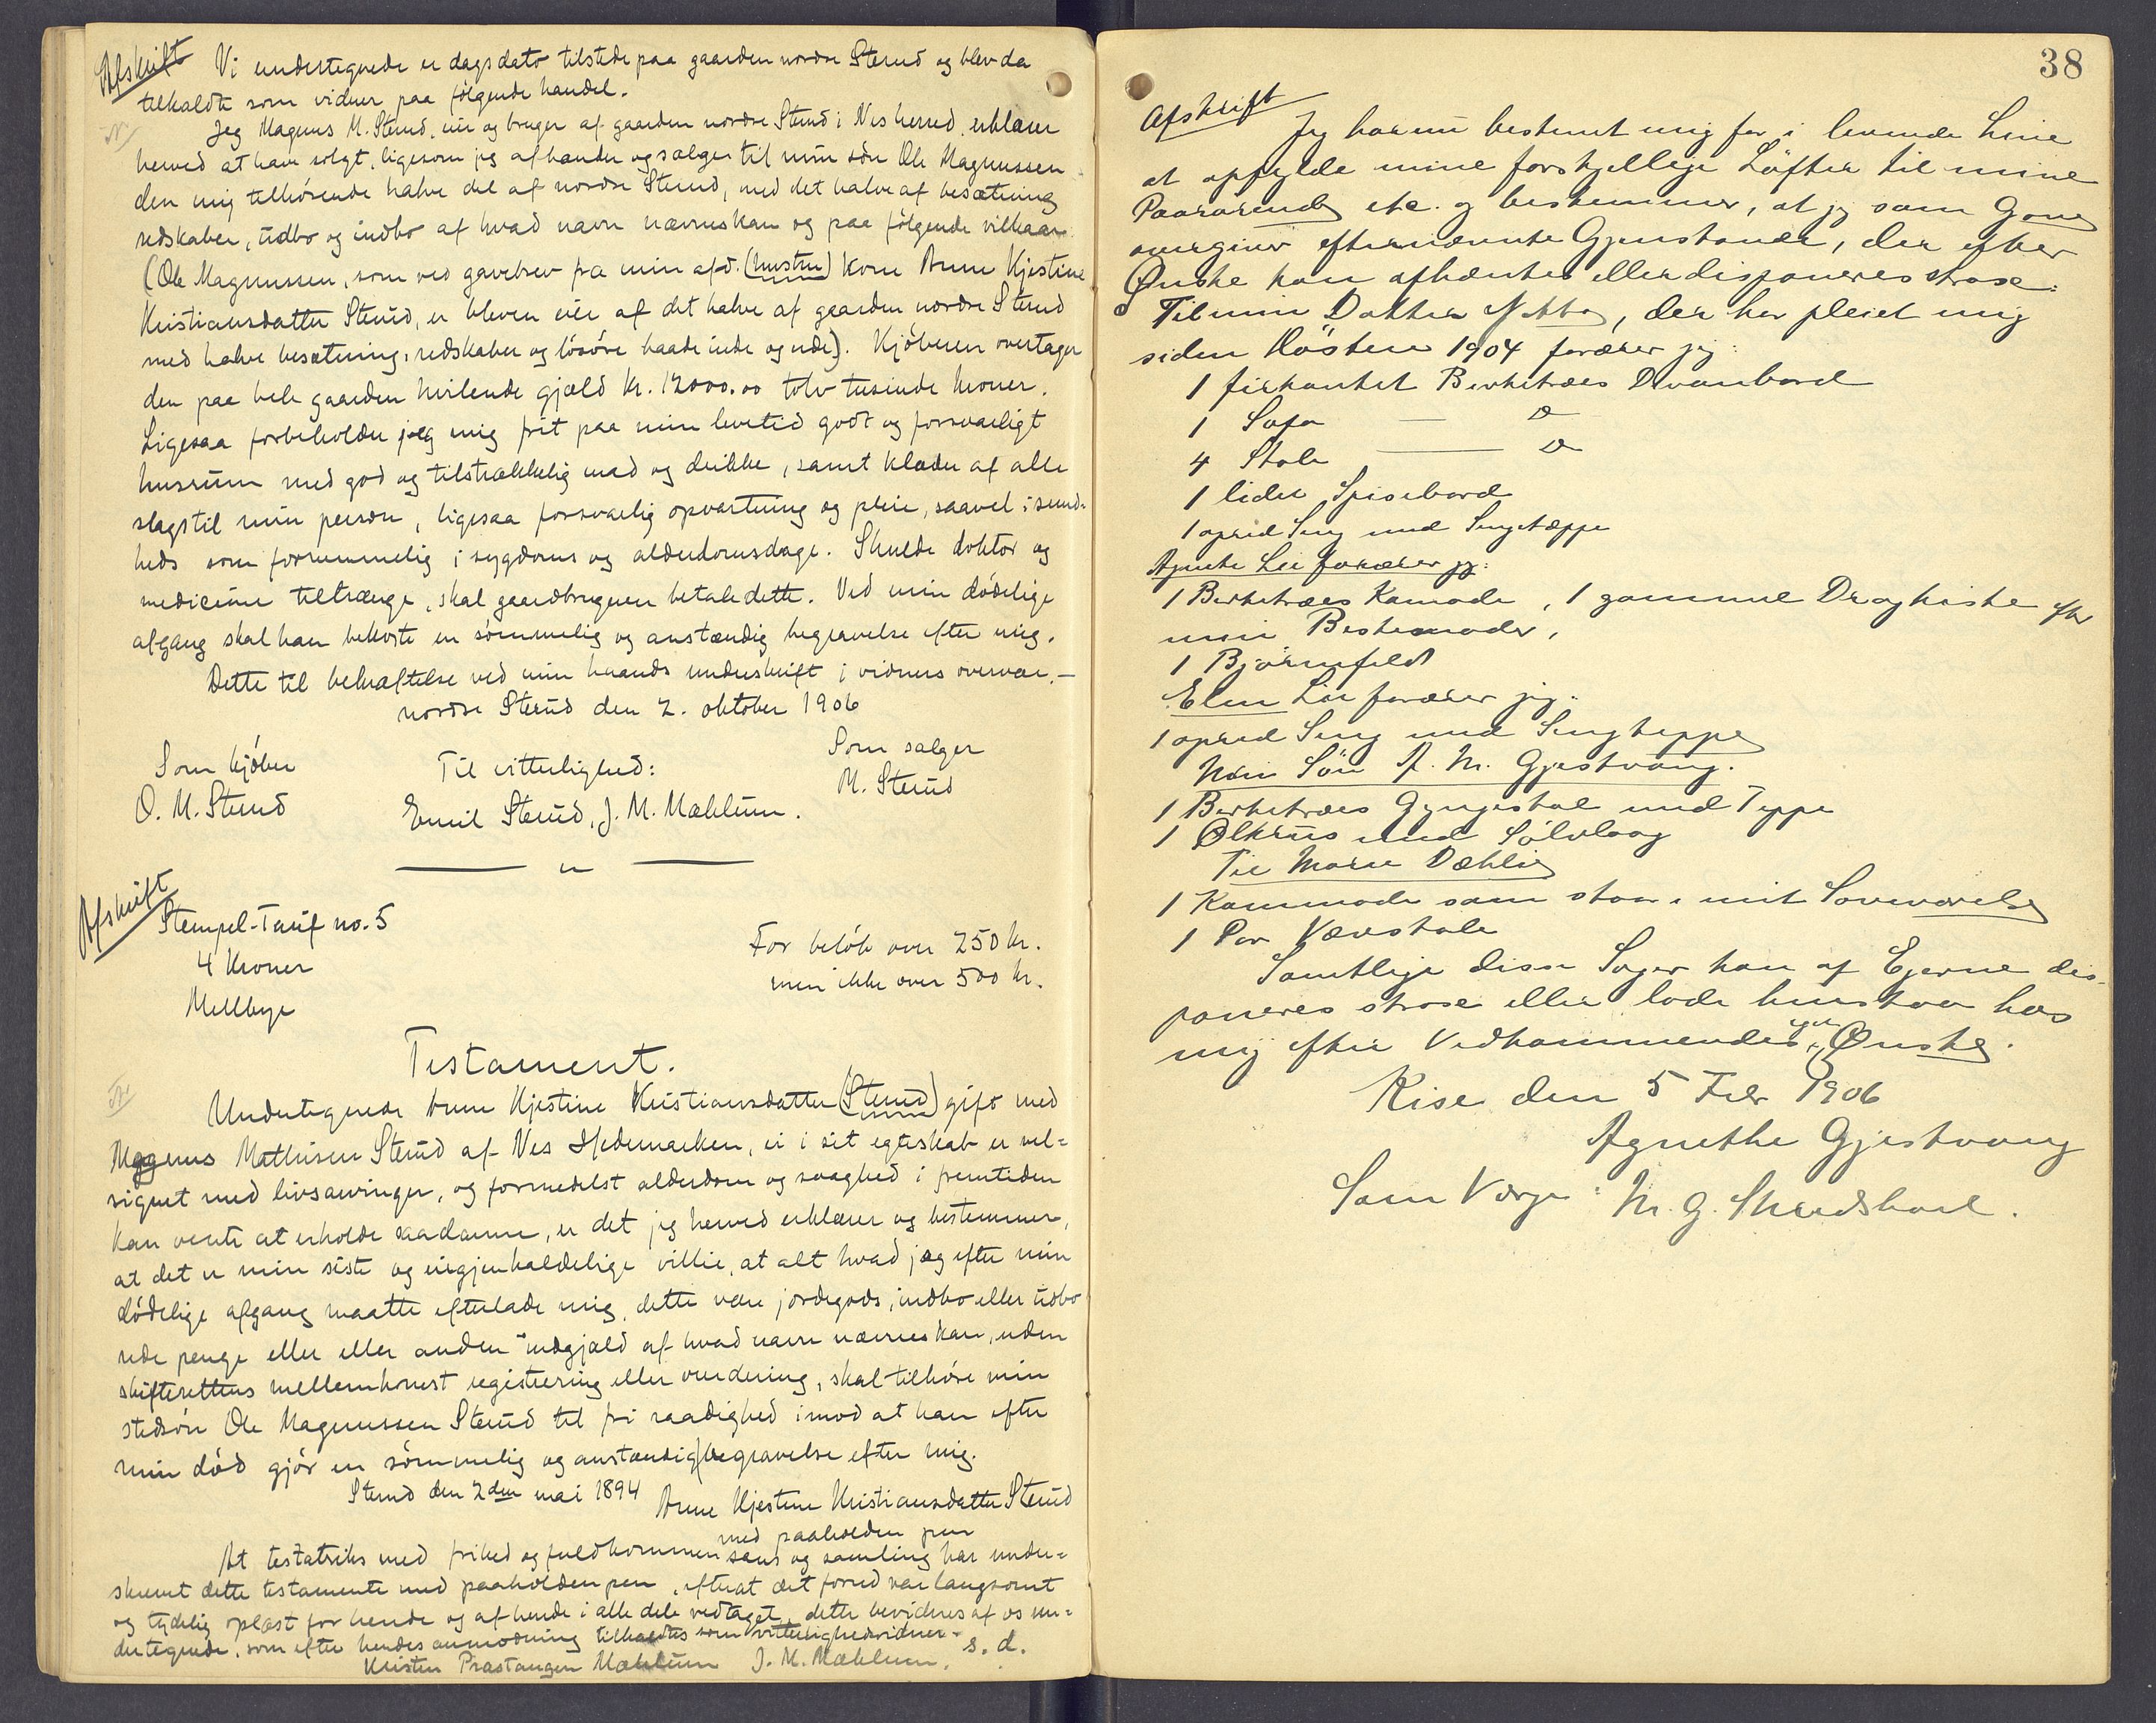 Afskrift Vi undertegnede er dags dato tilstede paa gaarden nordre Sterud og blev da
tilkaldte som vidner paa følgende handel.
Jeg Magnus M. Sterud, eier og bruger af gaarden nordre Sterud i Nes herred, erklærer
herved at have solgt, ligesom jeg afhænder og sælger til min søn Ole Magnussen
den mig tilhørende halve del af nordre Sterud, med det halve af besætning
redskaber, udbo og indbo af hvad navn nævnes kan og paa følgende vilkaar
(Ole Magnussen, som ved gavebrev fra min afd. (hustru) kone Anne Kjestine
Kristiansdatter Sterud, er bleven eier af det halve af gaarden nordre Sterud
med halve besætning, redskaber og løsøre baade inde og ude). Kjøberen overtager
den paa hele gaarden hvilende gjæld kr. 12000.00 tolv tusinde kroner.
Ligesaa forbeholder jeg mig frit paa min levetid godt og forsvarligt
husrum med god og tilstrækkelig mad og drikke, samt klæder af alle
slags til min person, ligesaa forsvarlig opvartning og pleie, saavel i sund-
heds som fornemmelig i sygdoms og alderdomsdage. Skulde doktor og
medicine tiltrænge, skal gaardbrugeren betale dette. Ved min dødelige
afgang skal han bekoste en sømmelig og anstændig begravelse efter mig.
Dette til bekræftelse ved min haands underskrift i vidners overvær.—
nordre Sterud den 2. oktober 1906
Som kjøber Til vitterlighed: Som sælger
O. M. Sterud Emil Sterud, J. M. Mæhlum. M. Sterud
Afskrift
Stempel-Tarif no. 5
4 Kroner For beløb over 250 kr.
Mellbye men ikke over 500 kr.
Testament.
Undertegnede Anne Kjestine Kristiansdatter (Sterud) gift med
Magnus Mathisen Sterud af Nes Hedemarken, ei i sit egteskab er vel-
signet med livsarvinger, og formedelst alderdom og svaghed i fremtiden
kan vente at erholde saadanne, er det jeg herved erklærer og bestemmer,
at det er min siste og uigjenkaldelige villie, at alt hvad jeg efter min
dødelige afgang maatte efterlade mig, dette være jordegods, indbo eller udbo
rede penge eller eller anden indgjæld af hvad navn nævnes kan, uden
skifterettens mellemkomst registrering eller vurdering, skal tilhøre min
stedsøn Ole Magnussen Sterud til fri raadighed imod at han efter
min død gjør en sømmelig og anstændig begravelse efter mig.
Sterud den 2den mai 1894 Anne Kjestine Kristiansdatter Sterud
med paaholden pen
At testatriks med frihed og fuldkommen sans og samling har under-
skrevet dette testamente med paaholden pen, efterat det forud var langsomt
og tydelig oplæst for hende og af hende i alle dele vedtaget, dette bevidnes af os un-
dertegnede, som efter hendes anmodning tilkaldtes som vitterlighedsvidner.
Kristen Præstangen Mæhlum J. M. Mæhlum. s. d.
38
Afskrift
Jeg har nu bestemt mig for i levende Live
at opfylde mine forskjellige Løfter til mine
Paarørende etc. og bestemmer, at jeg som Gave
overgiver efternævnte Gjenstande, der efter
Ønske kan afhentes eller disponeres strax:
Til min Datter Netta, der har pleiet mig
siden Høsten 1904 forærer jeg:
1 firkantet Birketræes Divanbord
1 Sofa — D
4 Stole — D
1 lidet Spisebord
1 opred Seng med Sengetæppe
Agnete Lie forærer jeg:
1 Birketræes Komode, 1 gammel Dragkiste efter
min Bestemoder,
1 Bjørnefeld
Elen Lie forærer jeg:
1 opred Seng med Sengteppe
Min Søn A. M. Gjestvang.
1 Birketræes Gyngestol med Teppe
1 Ølkrus med Sølvlaag
Til Maren Dæhlie
1 Kommode som staar i mit Soveværelse
1 Par Vævstole
Samtlige disse Sager kan af Eierne dis-
poneres strax eller lade henstaa hos
mig efter Vedkommendes eget Ønske.
Kise den 5 Febr 1906
Agnethe Gjestvang
Som Værge: M. G. Skredshoel.